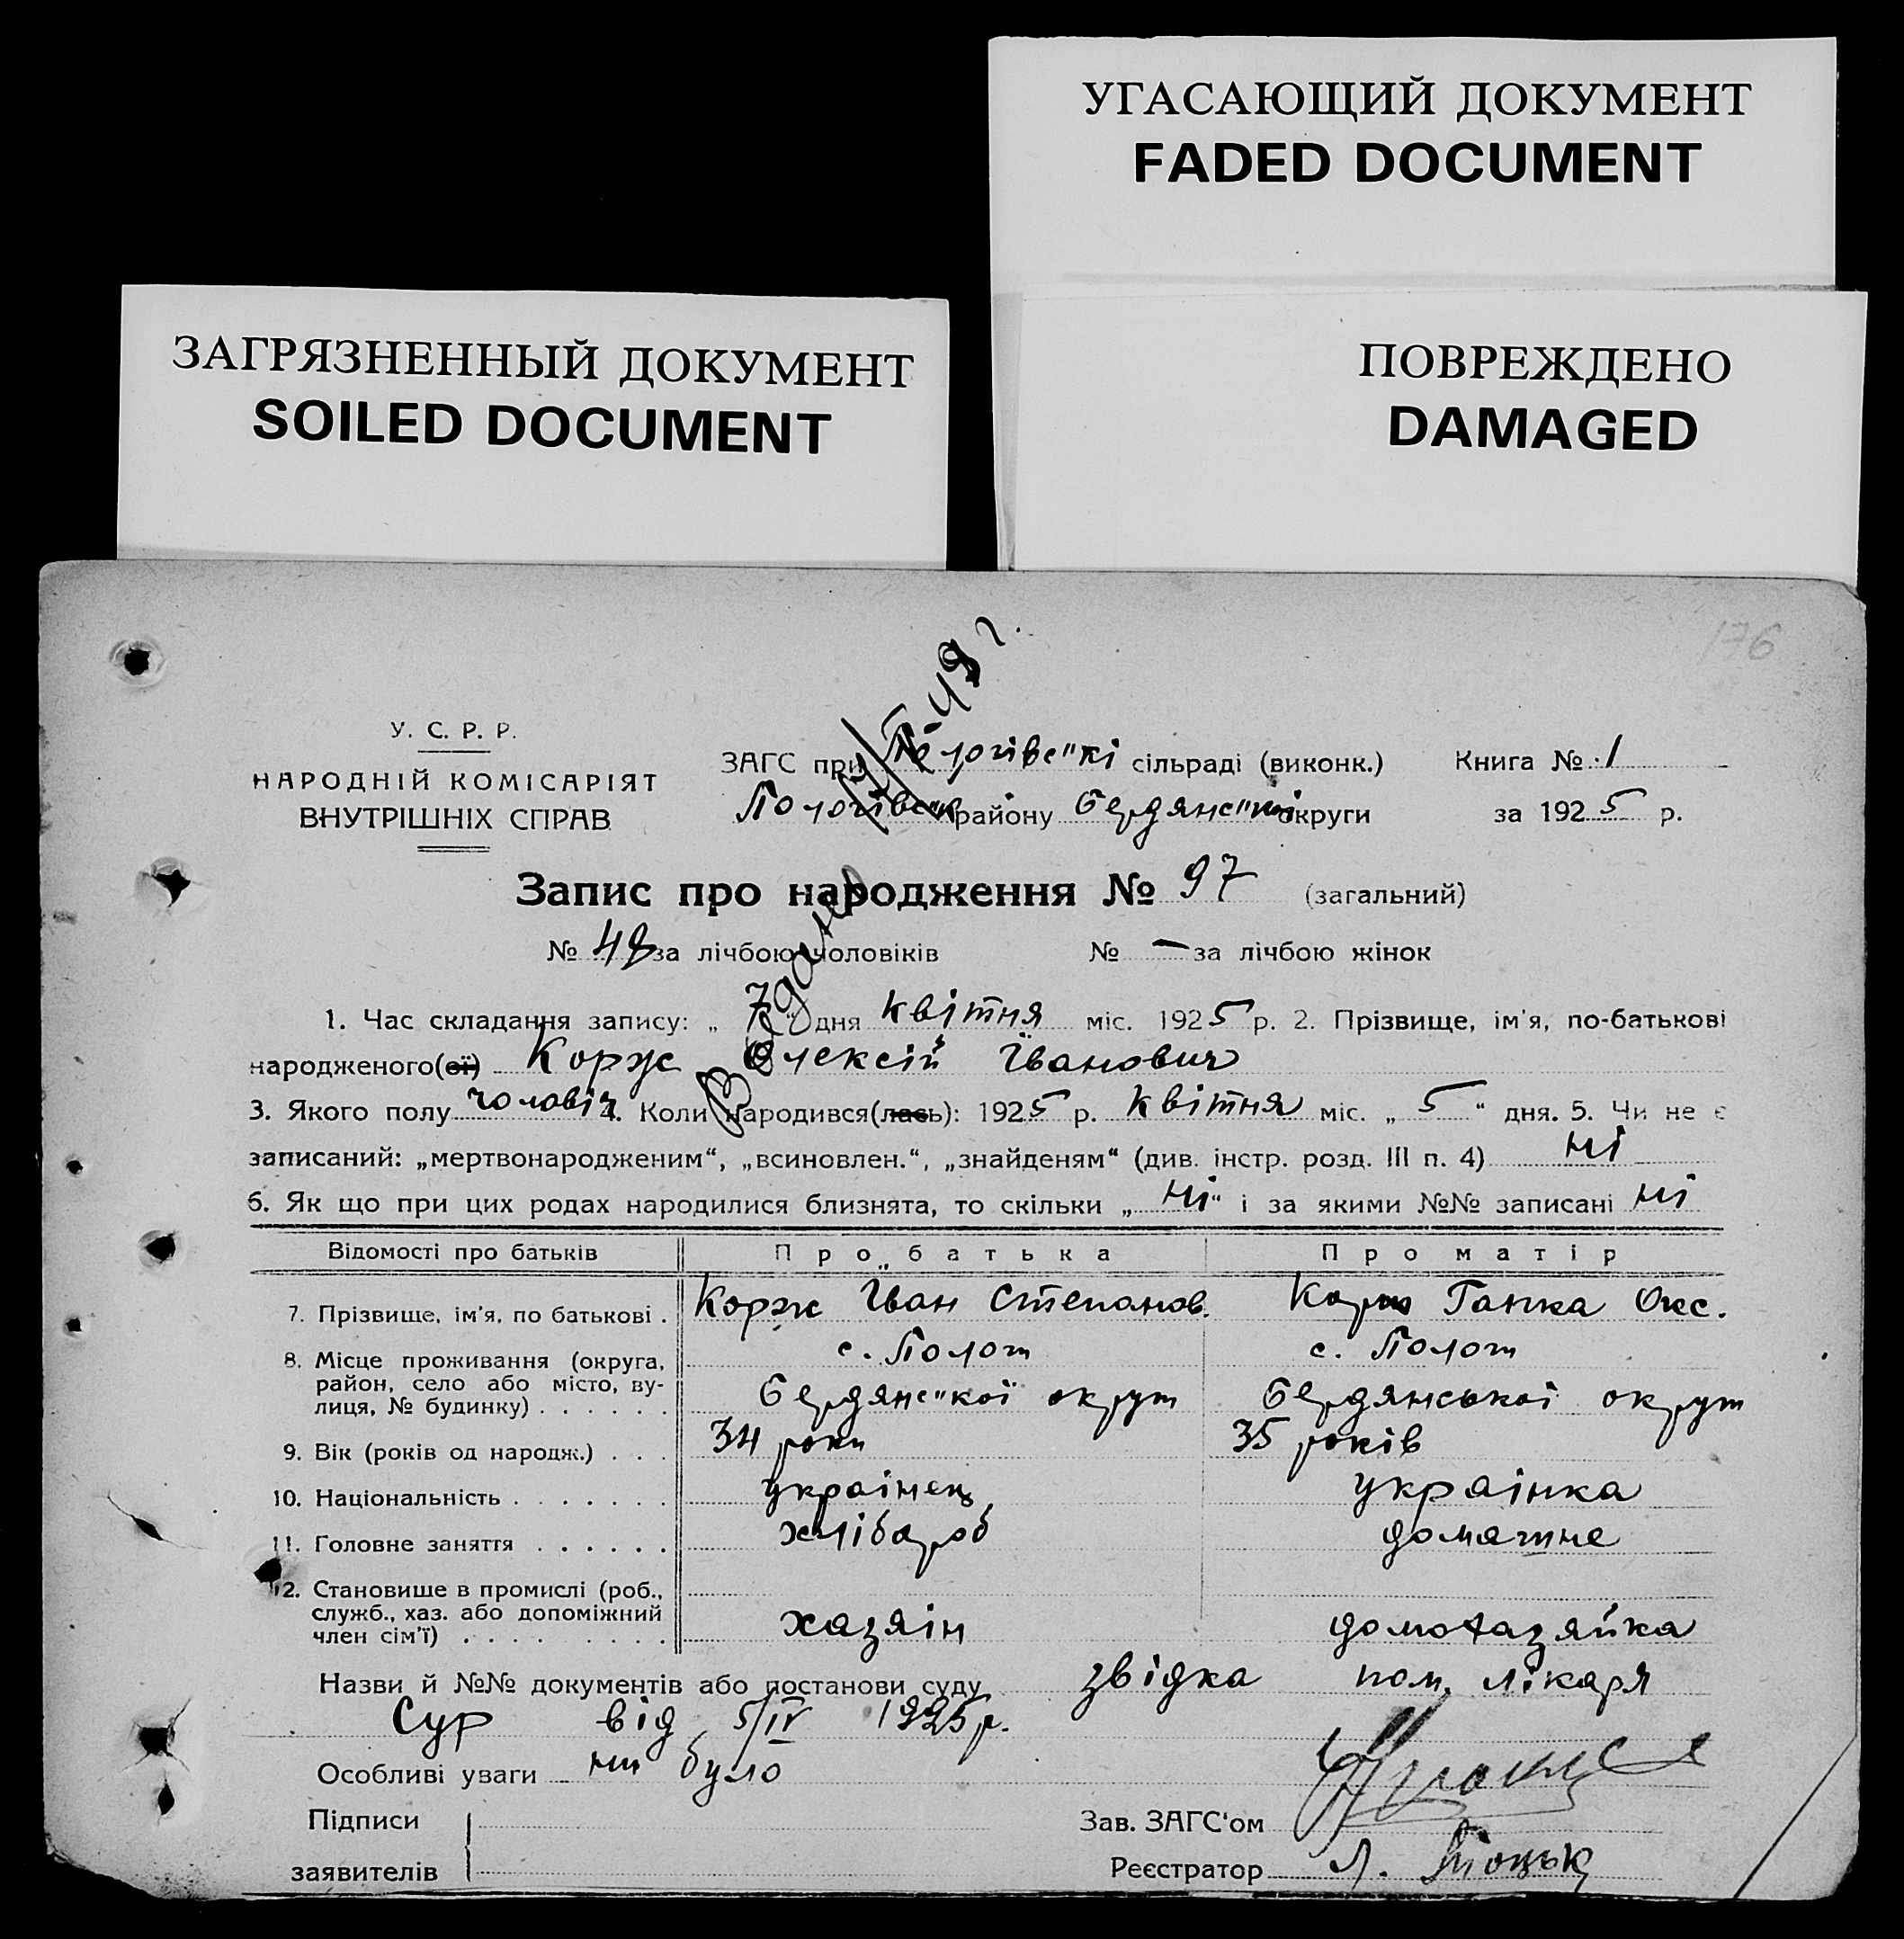 УГАСАЮЩИЙ ДОКУМЕНТ
FADED DOCUMENT
ЗАГРЯЗНЕННЫЙ ДОКУМЕНТ
SOILED DOCUMENT
ПОВРЕЖДЕНО
DAMAGED
176
У. С. Р. Р.
НАРОДНІЙ КОМІСАРІЯТ
ВНУТРІШНІХ СПРАВ
ЗАГС при Пологівс"кі сільраді (виконк.) Книга № 1
Пологівс"к району Бердянс"кі округи за 1925 р.
Запис про народження № 97 (загальний)
№ 48 за лічбою чоловіків № — за лічбою жінок
1. Час складання запису: „ 7 " дня квітня міс. 1925 р. 2. Прізвище, ім'я, по-батькові
народженого(ої) Корж Олексій Іванович
3. Якого полу чоловіч 4. Коли народився(лась): 1925 р. квітня міс. „ 5 " дня. 5. Чи не є
записаний: „мертвонародженим", „всиновлен.", „знайденям" (див. інстр. розд. III п. 4) ні
6. Як що при цих родах народилися близнята, то скільки „ ні " і за якими №№ записані ні
Відомості про батьків Про батька Про матір
7. Прізвище, ім'я, по батькові . Корж Іван Степанов. Корж Ганка Окс.
8. Місце проживання (округа, район, село або місто, вулиця, № будинку) . . . . . . с. Пологи Бердянс"кої округи с. Пологи Бердянської округи
9. Вік (років од народж.) . . . 34 роки 35 років
10. Національність . . . . . . . українець українка
11. Головне заняття . . . . . . хлібароб домашне
12. Становище в промислі (роб., служб., хаз. або допоміжний член сім'ї) . . . . . . . . . хазяін домохазяйка
Назви й №№ документів або постанови суду звідка пом. лікаря
Сур від 5/IV 1925 р.
Особливі уваги ни було
Підписи
заявителів
Зав. ЗАГС'ом
Реєстратор Л.